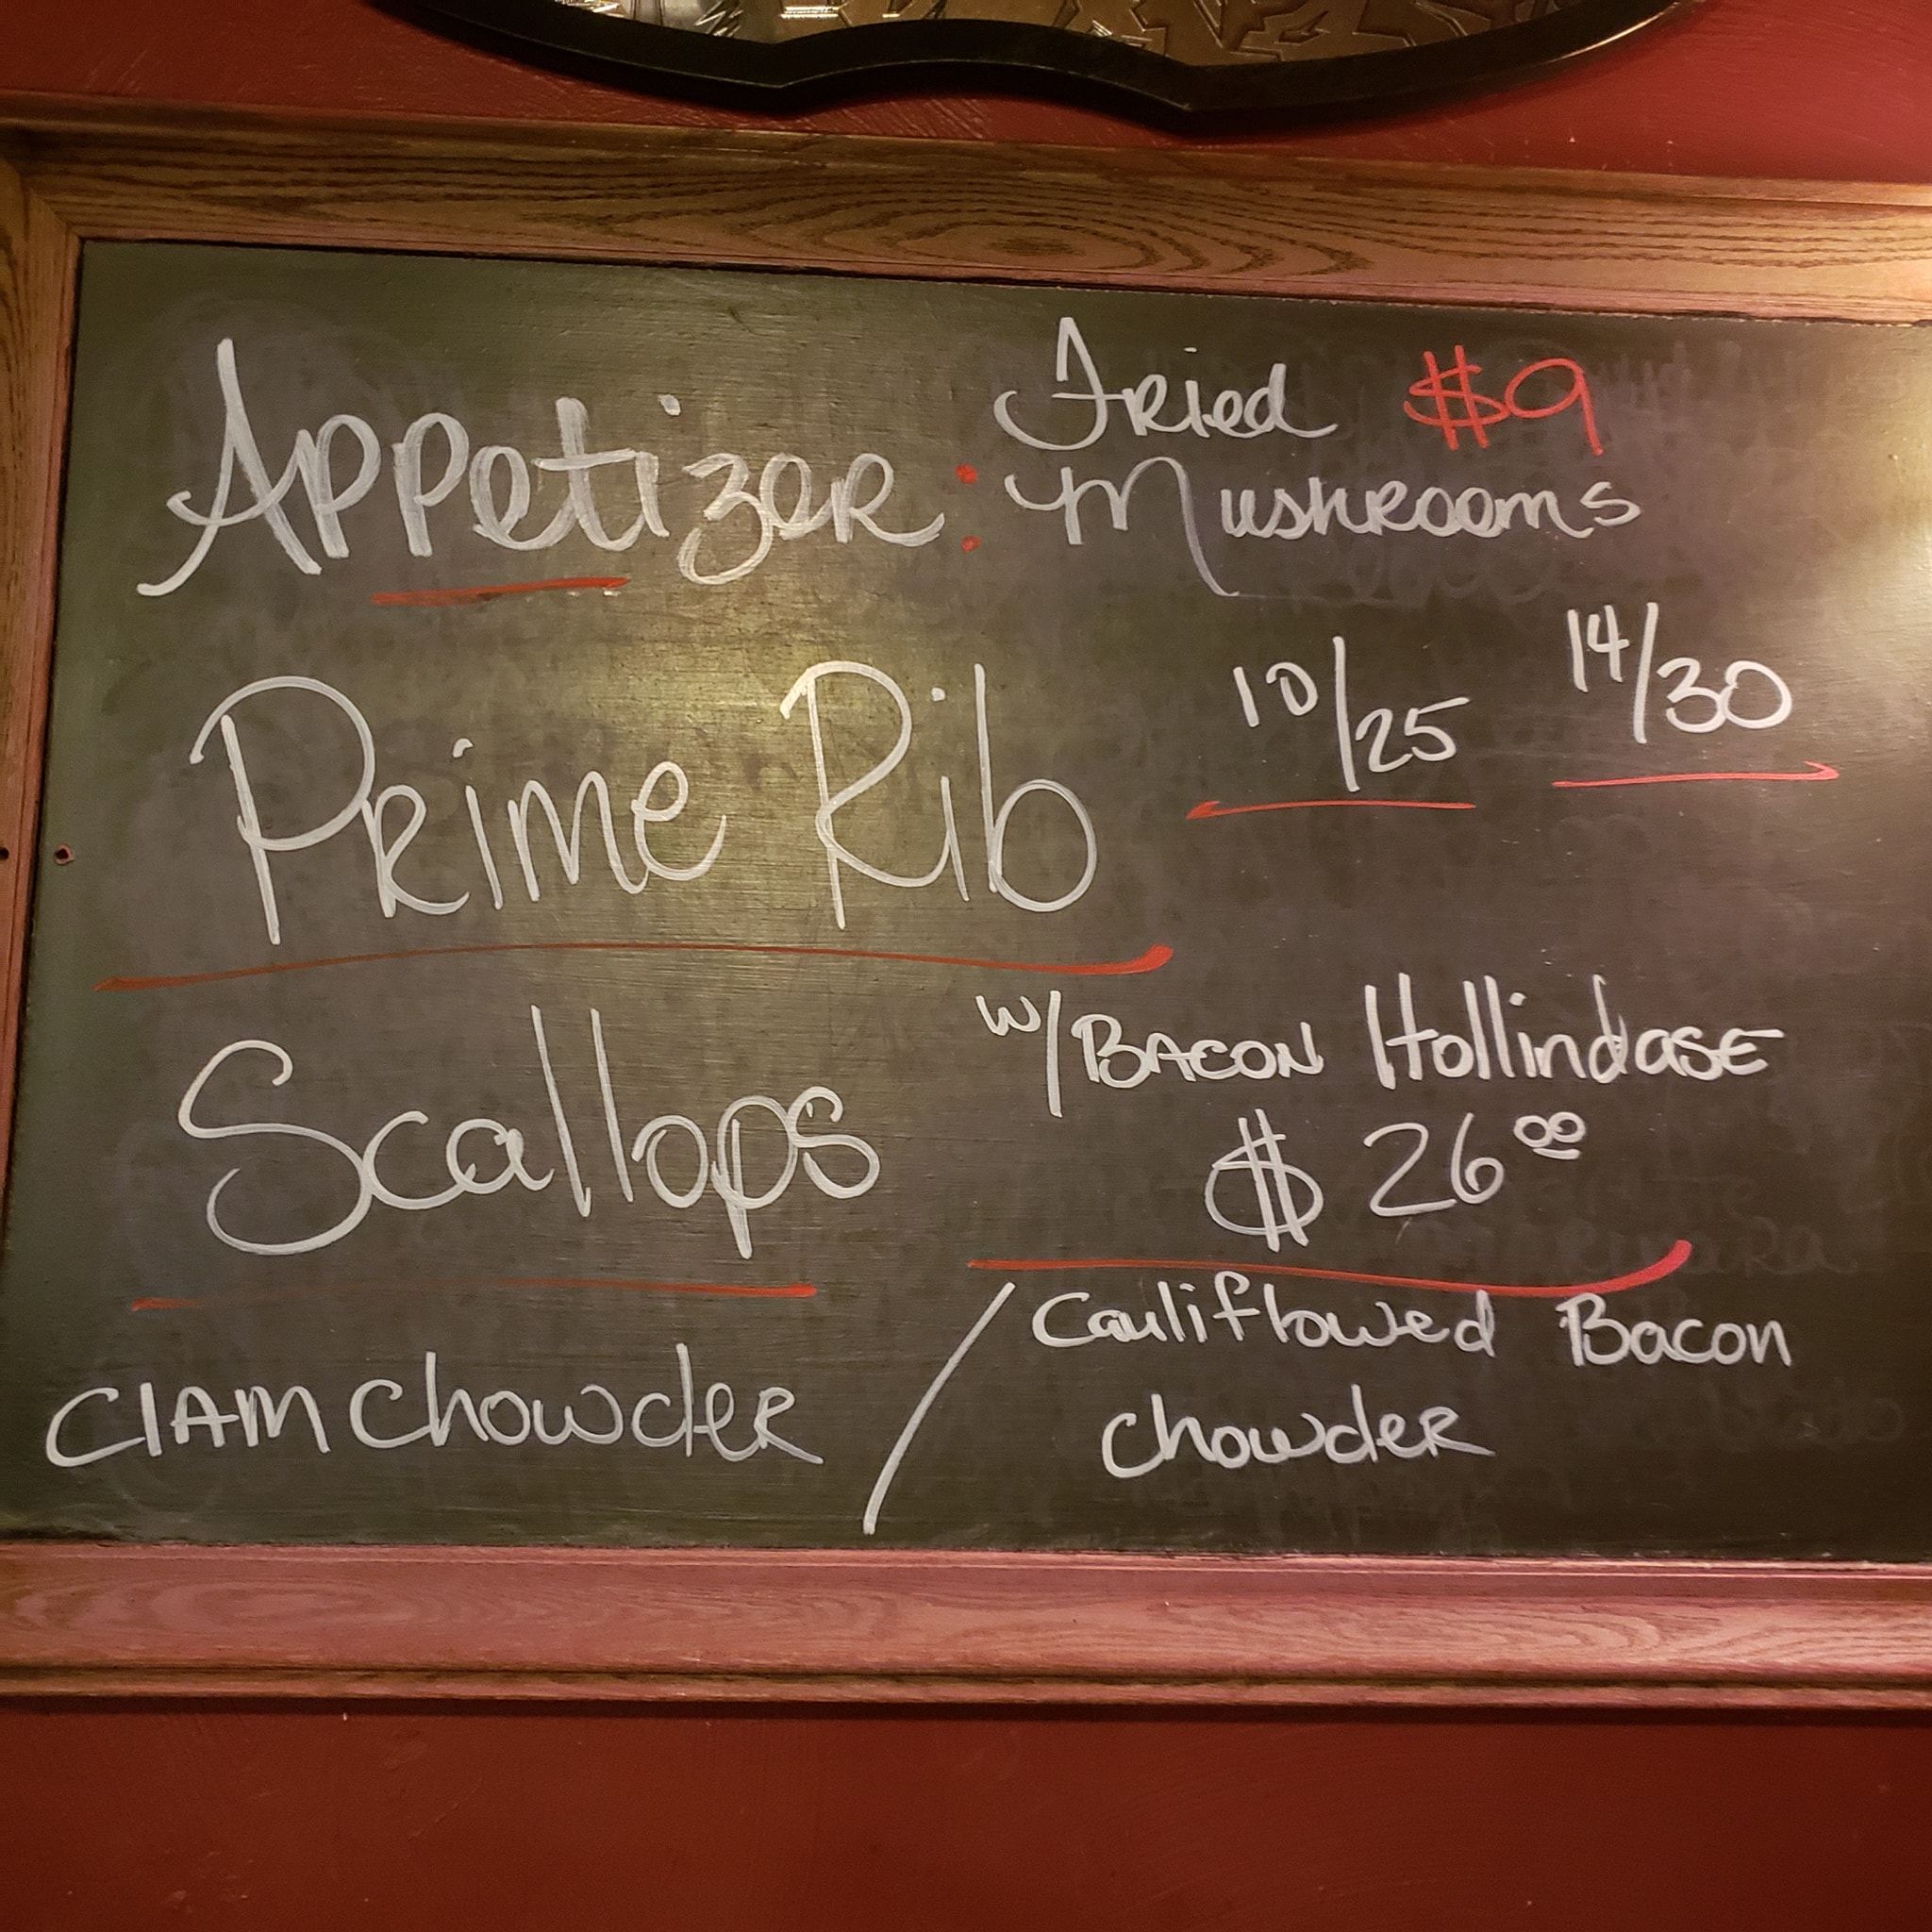 Appetizer: Fried $9
Mushrooms
Prime Rib 10/25 14/30
Scallops w/Bacon Hollindase
$26.00
Clam Chowder / Cauliflowed Bacon
Chowder